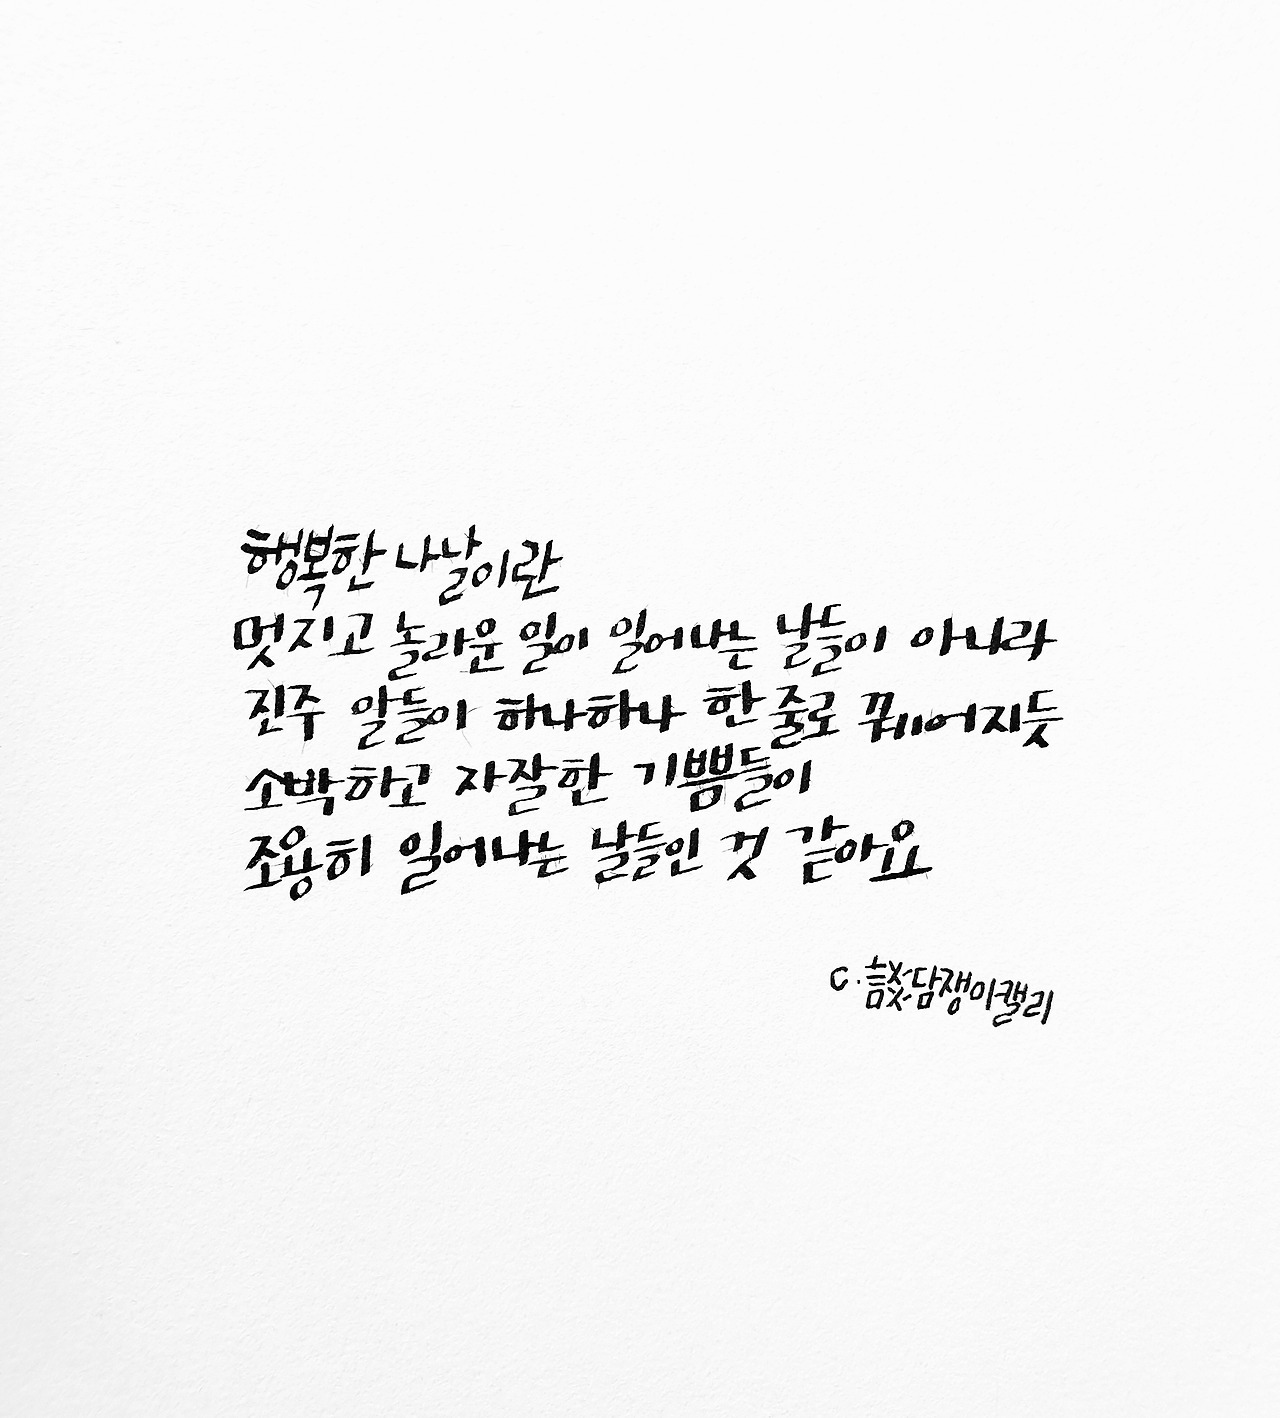 행복한 나날이란
멋지고 놀라운 일이 일어나는 날들이 아니라
진주 알들이 하나하나 한 줄로 꿰어지듯
소박하고 자잘한 기쁨들이
조용히 일어나는 날들인 것 같아요
c. 담쟁이캘리